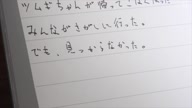 ツムギちゃんが帰ってこなくなった
みんながさがしに行った。
でも、見つからなかった。